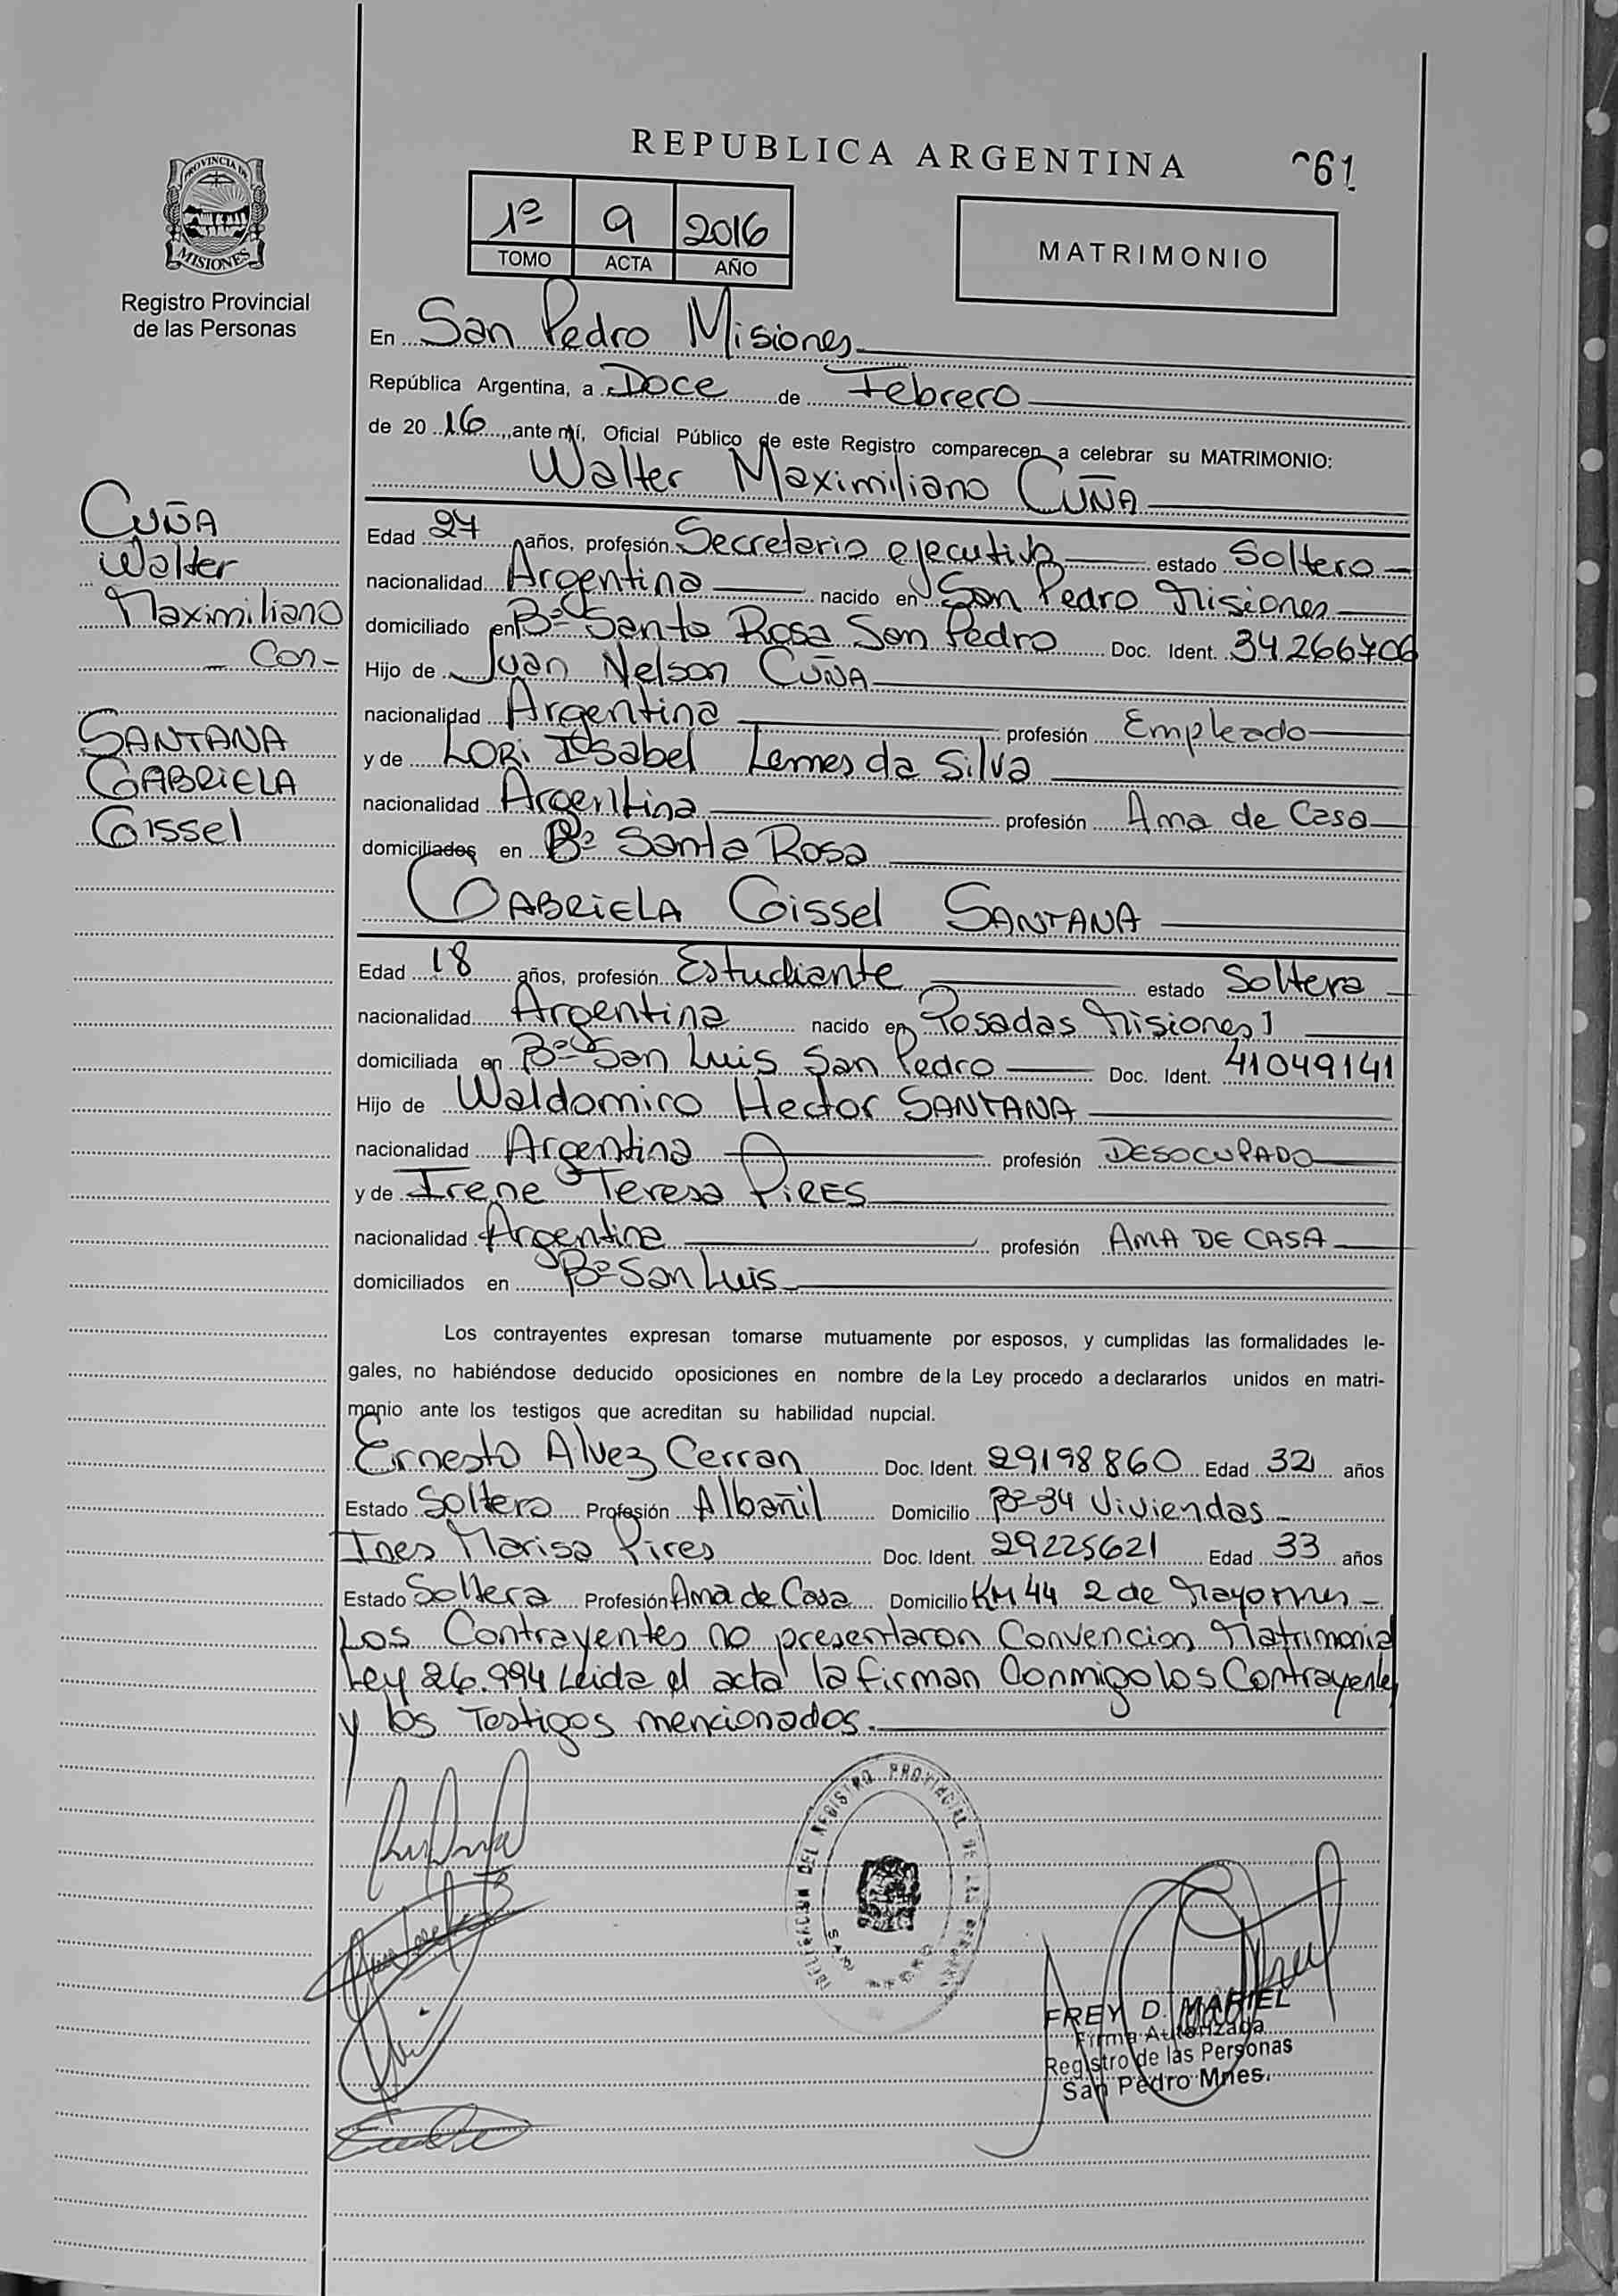 REPUBLICA ARGENTINA
061
PROVINCIA DE
MISIONES
Registro Provincial
de las Personas
1º 9 2016
TOMO ACTA AÑO
MATRIMONIO
En San Pedro Misiones
República Argentina, a Doce de Febrero
de 20 16, ante mí, Oficial Público de este Registro comparecen a celebrar su MATRIMONIO:
Walter Maximiliano CUÑA
CUÑA
Walter
Maximiliano
Con-
SANTANA
GABRIELA
Gissel
Edad 27 años, profesión Secretario ejecutivo estado Soltero
nacionalidad Argentina nacido en San Pedro Misiones
domiciliado en Bº Santa Rosa San Pedro Doc. Ident. 34.266706
Hijo de Juan Nelson CUÑA
nacionalidad Argentina profesión Empleado
y de LORi ISabel Lemes da Silva
nacionalidad Argentina profesión Ama de Casa
domiciliados en Bº Santa Rosa
GABRiELA Gissel SANTANA
Edad 18 años, profesión Estudiante estado Soltera
nacionalidad Argentina nacido en Posadas Misiones
domiciliada en Bº San Luis San Pedro Doc. Ident. 41049141
Hijo de Waldomiro Hector SANTANA
nacionalidad Argentina profesión DESOCUPADO
y de Irene Teresa PiRES
nacionalidad Argentina profesión AMA DE CASA
domiciliados en Bº San Luis
Los contrayentes expresan tomarse mutuamente por esposos, y cumplidas las formalidades le-
gales, no habiéndose deducido oposiciones en nombre de la Ley procedo a declararlos unidos en matri-
monio ante los testigos que acreditan su habilidad nupcial.
Ernesto Alvez Cerran Doc. Ident. 29198860 Edad 32 años
Estado Soltero Profesión Albañil Domicilio Bº 34 Viviendas
Ines Marisa Pires Doc. Ident. 29225621 Edad 33 años
Estado Soltera Profesión Ama de Casa Domicilio KM 44 2 de Mayo Mnes
Los Contrayentes no presentaron Convencion Matrimonial
Ley 26.994 Leida el acta la firman Conmigo los Contrayentes
y los Testigos mencionados.
DELEGACION DEL REGISTRO PROVINCIAL DE LAS PERSONAS
SAN PEDRO
FREY D. MARIEL
Firma Autorizada
Registro de las Personas
San Pedro Mnes.